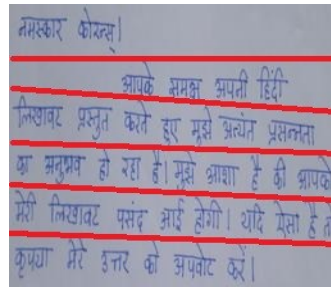 नमस्कार कोरन्स्।
आपके समक्ष अपनी हिंदी
लिखावट प्रस्तुत करते हुए मुझे अत्यंत प्रसन्नता
का अनुभव हो रहा है। मुझे आशा है की आपको
मेरी लिखावट पसंद आई होगी। यदि ऐसा है तो
कृपया मेरे उत्तर को अपवोट करें।